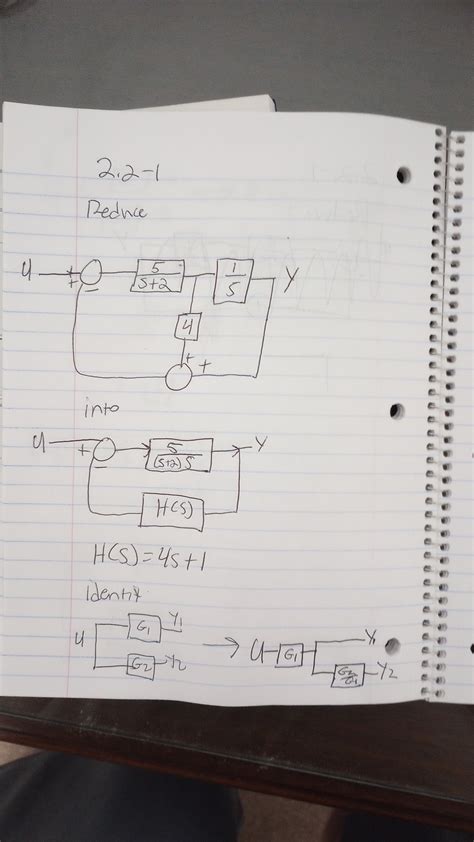 2.2-1
Reduce
U + 5/(s+2) 1/s Y
−
4
+ +
into
U + 5/((s+2)s) Y
−
H(s)
H(s)=4s+1
identity
U G1 Y1 → U G1 Y1
G2 Y2 G2/G1 Y2